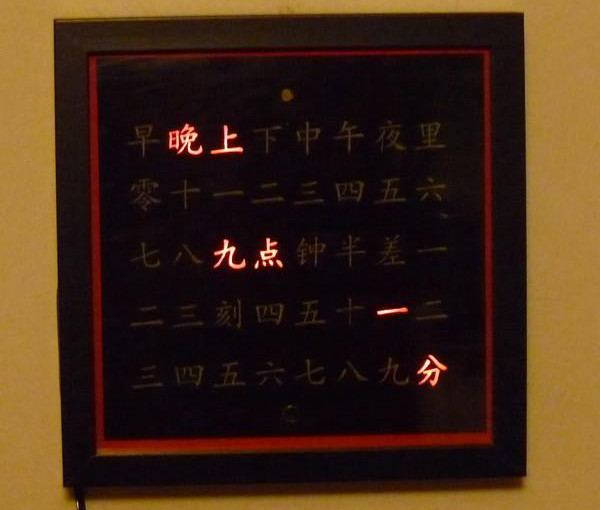 早晚上下中午夜里
零十一二三四五六
七八九点钟半差一
二三刻四五十一二
三四五六七八九分